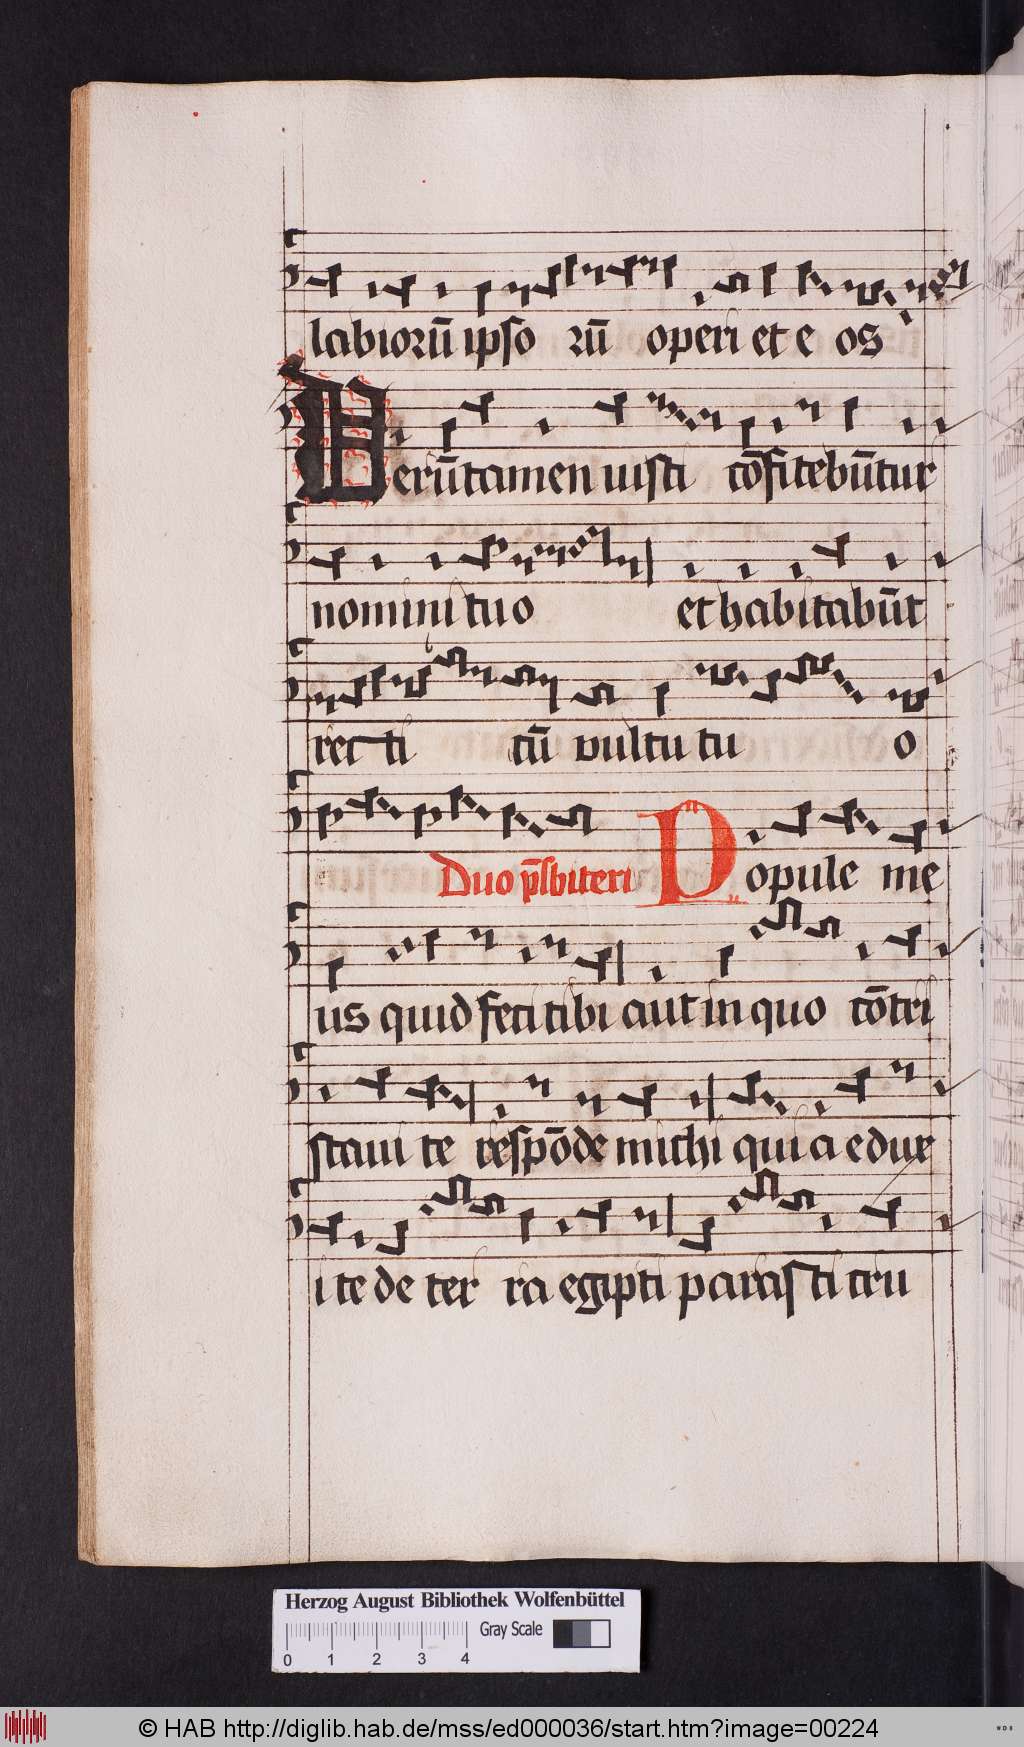 labiorū ipso rū operi et e os
Verūtamen iusti cōfitebūtur
nomini tuo et habitabūt
recti cū vultu tu o
Duo p̄sbiteri Popule me
us quid feci tibi aut in quo cōtri
staui te respōde michi quia edux
i te de ter ra egipti parasti cru
Herzog August Bibliothek Wolfenbüttel
0 1 2 3 4 Gray Scale
© HAB http://diglib.hab.de/mss/ed000036/start.htm?image=00224